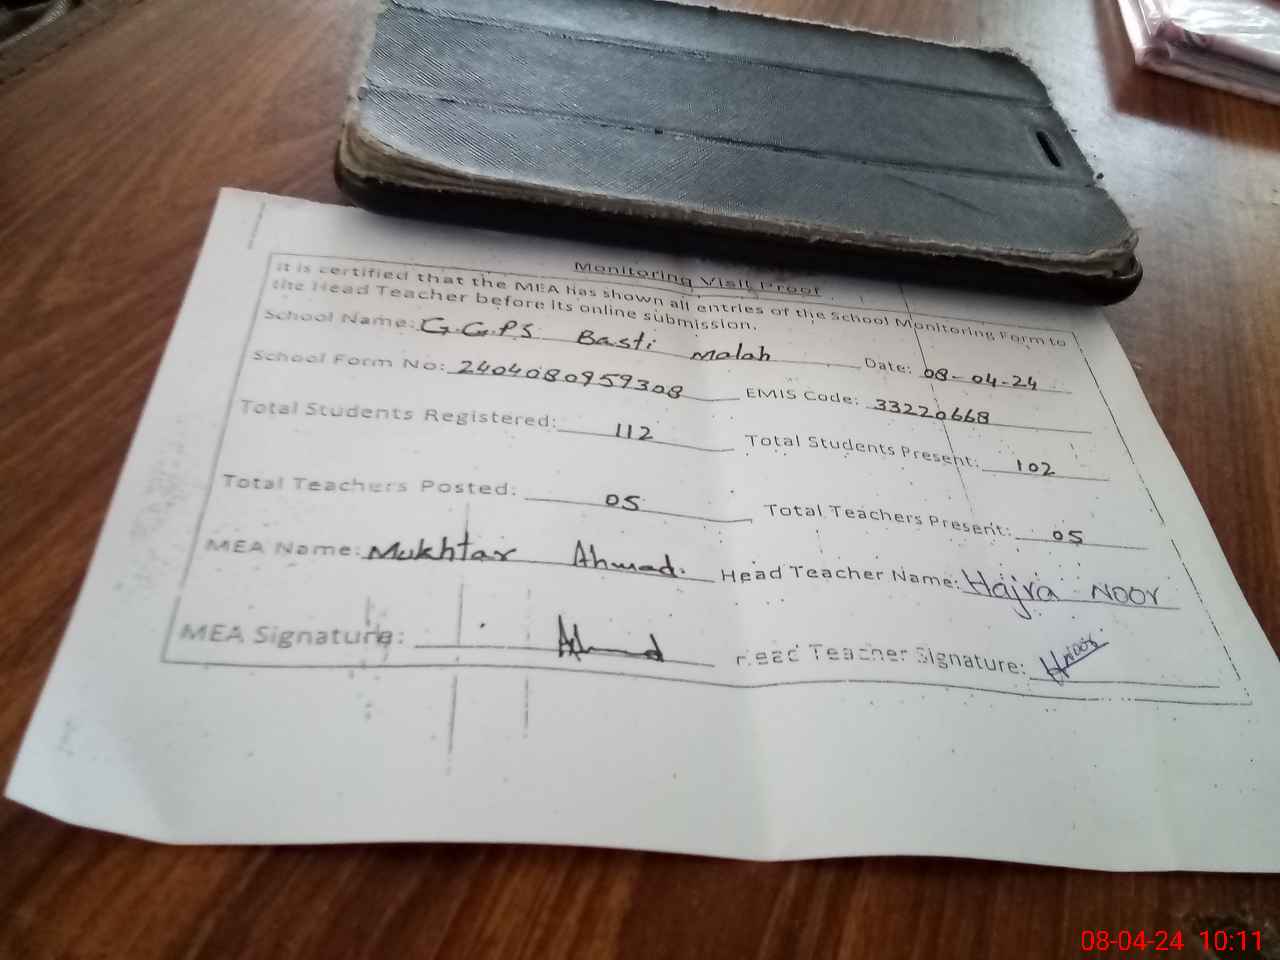 Monitoring Visit Proof
It is certified that the MEA has shown all entries of the School Monitoring Form to
the Head Teacher before its online submission.
School Name: G.G.P.S Basti Malah Date: 08-04-24
School Form No: 2404080959308 EMIS Code: 33220668
Total Students Registered: 112 Total Students Present: 102
Total Teachers Posted: 05 Total Teachers Present: 05
MEA Name: Mukhtar Ahmad. Head Teacher Name: Hajra Noor
MEA Signature: Ahmad Head Teacher Signature: HNoor
08-04-24 10:11